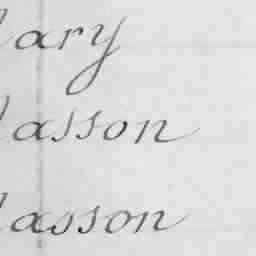 ary
asson
asson